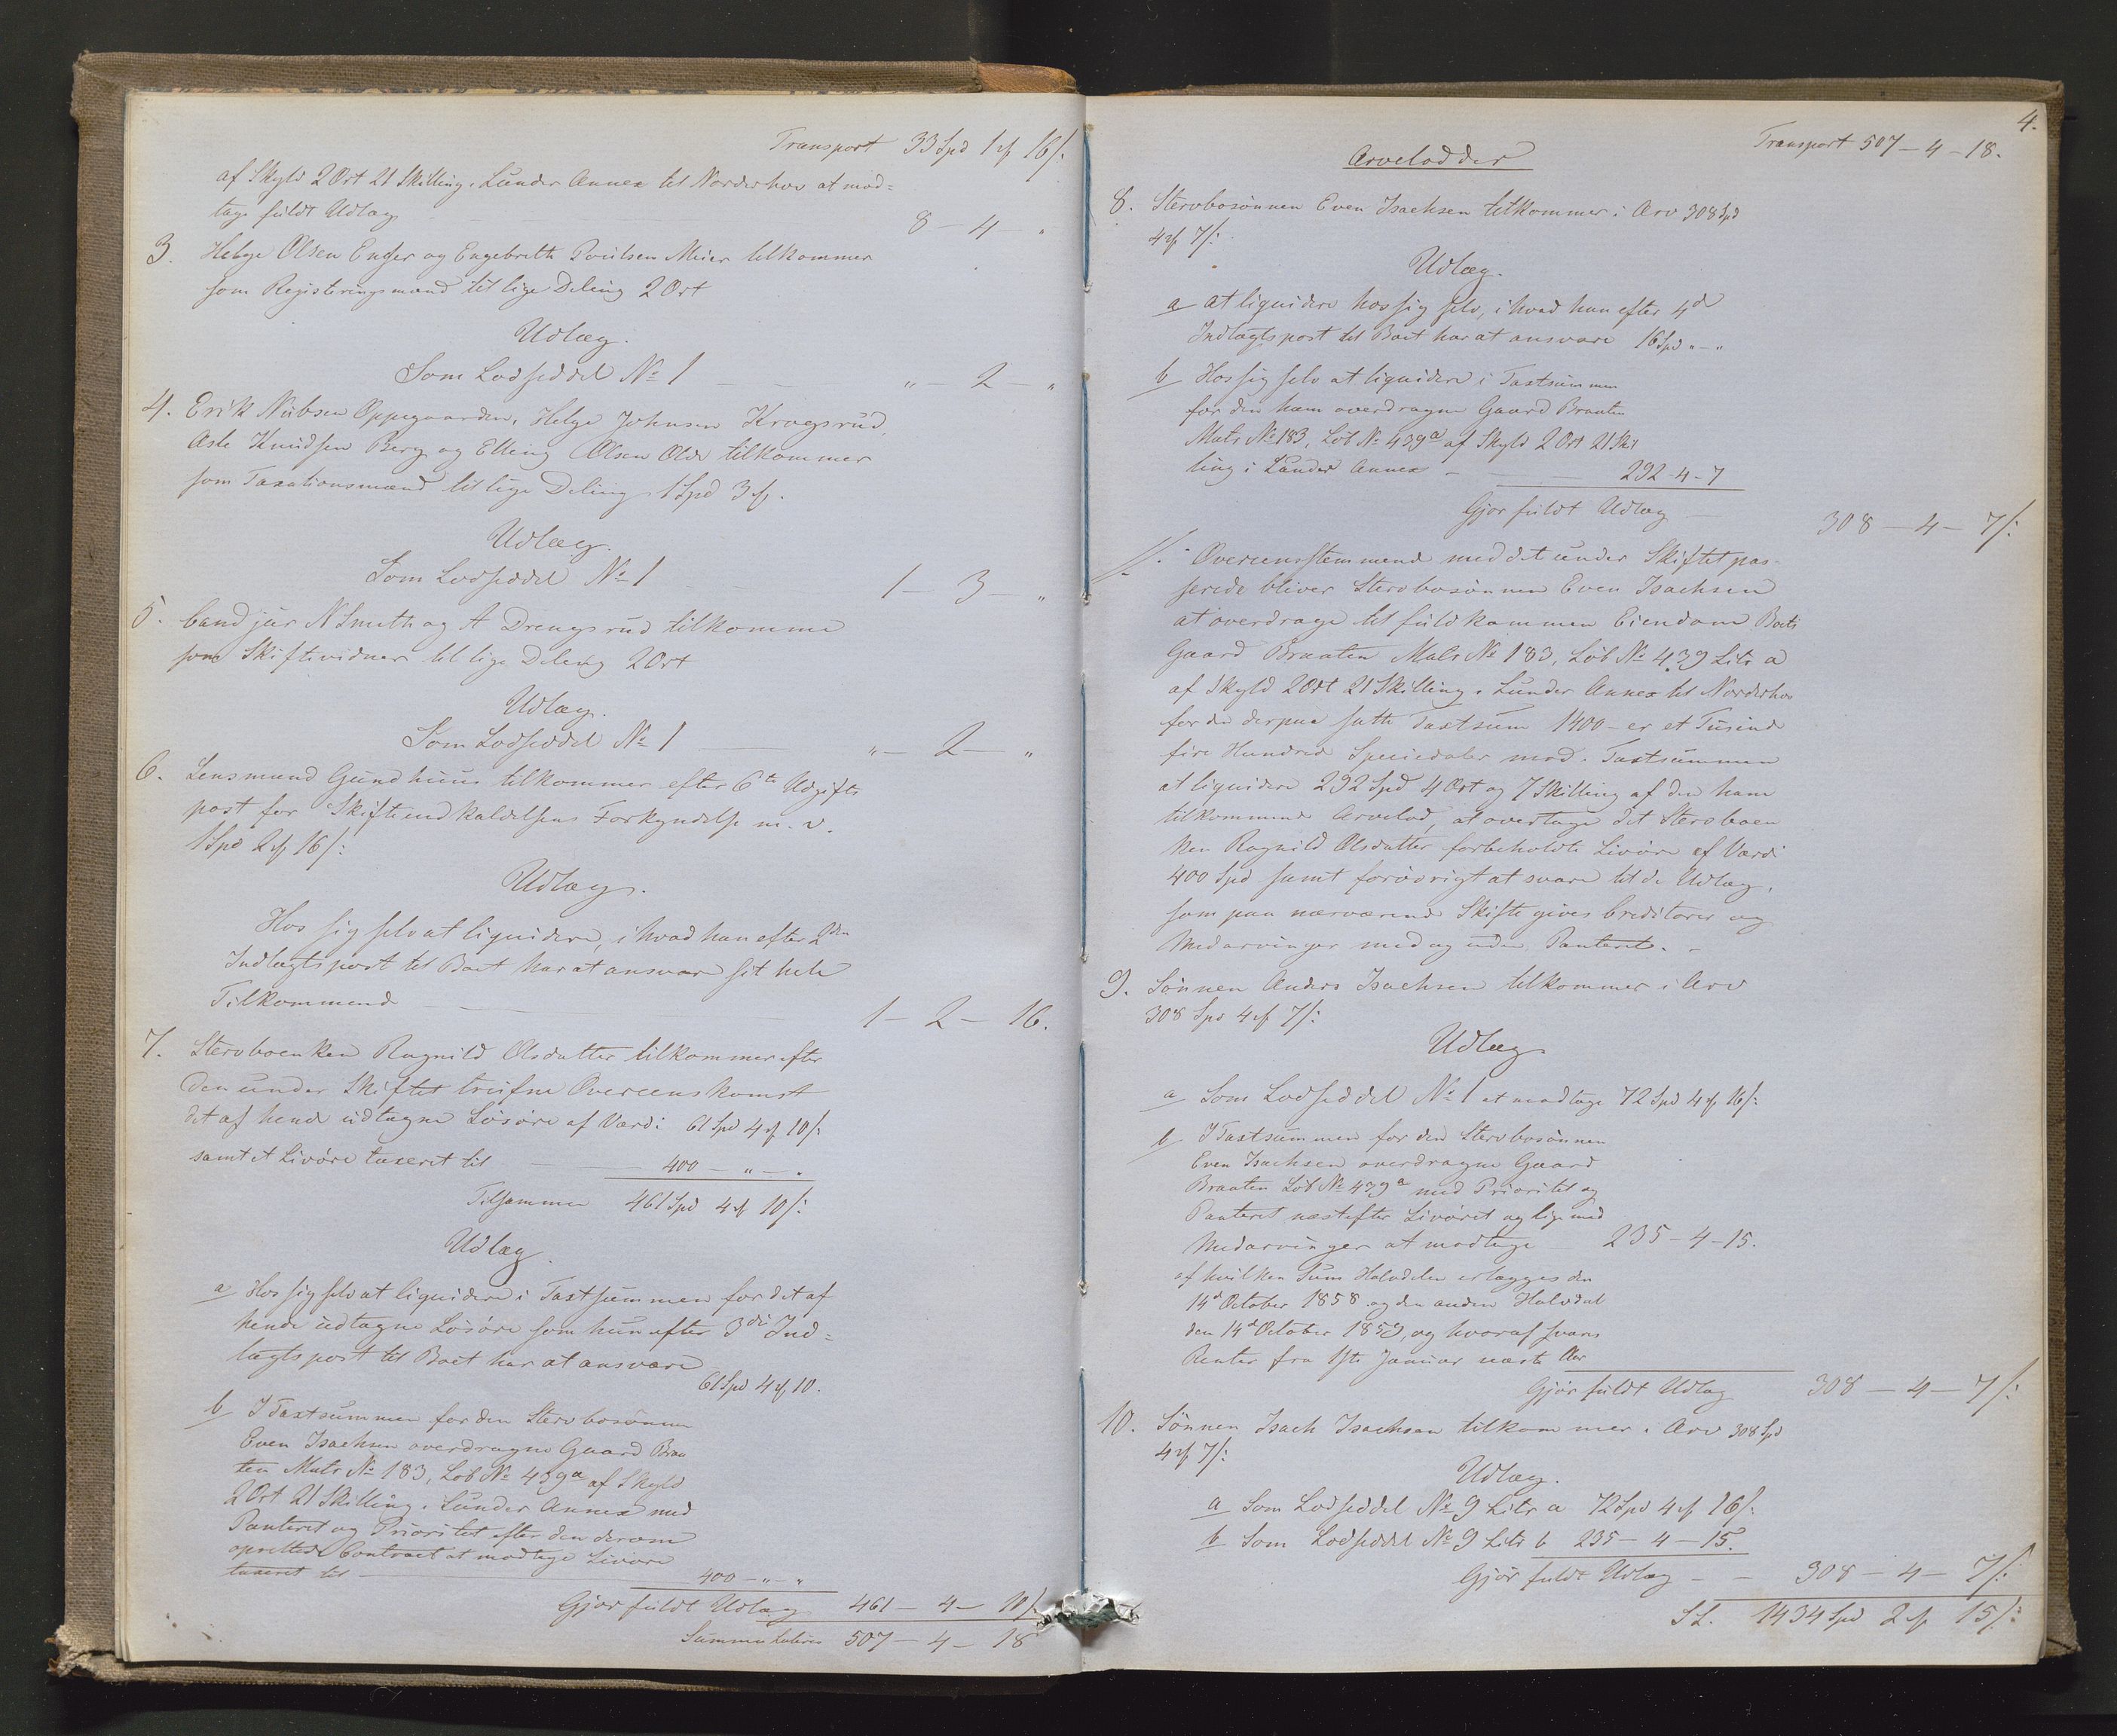 Transport 33 Spd 1 ϸ 16 /:
af Skyld 2 Ort 21 Skilling i Lunder Annex til Norderhov at mod=
tage fuldt Udlæg 8 – 4 – "
3. Helge Olsen Enger og Engebreth Poulsen Meier tilkommer
som Registeringsmænd til lige Deling 2 Ort
Udlæg.
Som Lodseddel No 1 " – 2 – "
4. Erik Nubsen Oppegaarden, Helge Johnsen Krogsrud,
Asle Knudsen Berg og Elling Olsen Olde tilkommer
som Taxationsmænd til lige Deling 1 Spd 3 ϸ.
Udlæg.
Som Lodseddel No 1 1 – 3 – "
5. Cand jur N Smith og A Drengsrud tilkomme
som Skiftevidner til lige Deling 2 Ort
Udlæg.
Som Lodseddel No 1 " – 2 – "
6. Lensmand Gundhuus tilkommer efter 6te Udgifts
post for Skifteindkaldelsens Forkyndelse m. v.
1 Spd 2 ϸ 16 /:
Udlæg.
Hos sig selv at liquidere, i hvad han efter 2den
Indtægtspost til Boet har at ansvare sit hele
Tilkommende 1 – 2 – 16.
7. Stervboenken Ragnild Olsdatter tilkommer efter
den under Skiftet trufne Overeenskomst
det af hende udtagne Løsøre af Værdi 61 Spd 4 ϸ 10 /:
samt et Livøre taxeret til 400 – " – "
Tilsammen 461 Spd 4 ϸ 10 /:
Udlæg
a Hos sig selv at liquidere i Taxtsummen for det af
hende udtagne Løsøre som hun efter 3die Ind=
tægtspost til Boet har at ansvare
61 Spd 4 ϸ 10.
b I Taxtsummen for den Stervbosønnen
Even Isachsen overdragne Gaard Braa
ten Matr No 183, Løb No 439a af Skyld
2 Ort 21 Skilling i Lunder Annex med
Panteret og Prioritet efter den derom
oprettede Contract at modtage Livøre
taxeret til 400 – " – "
Gjør fuldt Udlæg 461 – 4 – 10 /:
Summa lateris 507 – 4 – 18
4.
Transport 507 – 4 – 18.
Arvelodder
8. Stervbosønnen Even Isachsen tilkommer i Arv 308 Spd
4 ϸ 7 /:
Udlæg.
a At liquidere hos sig selv, i hvad han efter 4de
Indtægtspost til Boet har at ansvare 16 Spd " – "
b Hos sig selv at liquidere i Taxtsummen
for den ham overdragne Gaard Braaten
Matr No 183, Løb No 439a af Skyld 2 Ort 21 Skil
ling i Lunder Annex – 292 – 4 – 7
Gjør fuldt Udlæg 308 – 4 – 7 /:
//: Overeensstemmende med det under Skiftet pas=
serede bliver Stervbosønnen Even Isachsen
at overdrage til fuldkommen Eiendom Boets
Gaard Braaten Matr No 183, Løb No 439 Litr a
af Skyld 2 Ort 21 Skilling i Lunder Annex til Norderhov
for den derpaa satte Taxtsum 1400 – er et Tusinde
fire Hundrede Speciedaler mod i Taxtsummen
at liquidere 292 Spd 4 Ort og 7 Skilling af den ham
tilkommende Arvelod, at overtage det Stervboen
ken Ragnild Olsdatter forbeholdte Livøre af Værdi
400 Spd samt forøvrigt at svare til de Udlæg,
som paa nærværende Skifte gives Creditorer og
Medarvinger med og uden Panteret. –
9. Sønnen Anders Isachsen tilkommer i Arv
308 Spd 4 ϸ 7 /:
Udlæg
a Som Lodseddel No 1 at modtage 72 Spd 4 ϸ 16 /:
b I Taxtsummen for den Stervbosønnen
Even Isachsen overdragne Gaard
Braaten Løb No 439a med Prioritet og
Panteret næstefter Livøret og lige med
Medarvinger at modtage 235 – 4 – 15.
af hvilken Sum Halvdelen erlægges den
14de October 1858 og den anden Halvdel
den 14de October 1859, og hvoraf svares
Renter fra 1ste Januar næste Aar
Gjør fuldt Udlæg 308 – 4 – 7 /:
10. Sønnen Isach Isachsen tilkommer i Arv 308 Spd
4 ϸ 7 /:
Udlæg.
a Som Lodseddel No 9 Litr a 72 Spd 4 ϸ 16 /:
b Som Lodseddel No 9 Litr b 235 – 4 – 15.
Gjør fuldt Udlæg – – 308 – 4 – 7 /:
S L. 1434 Spd 2 ϸ 15 /: